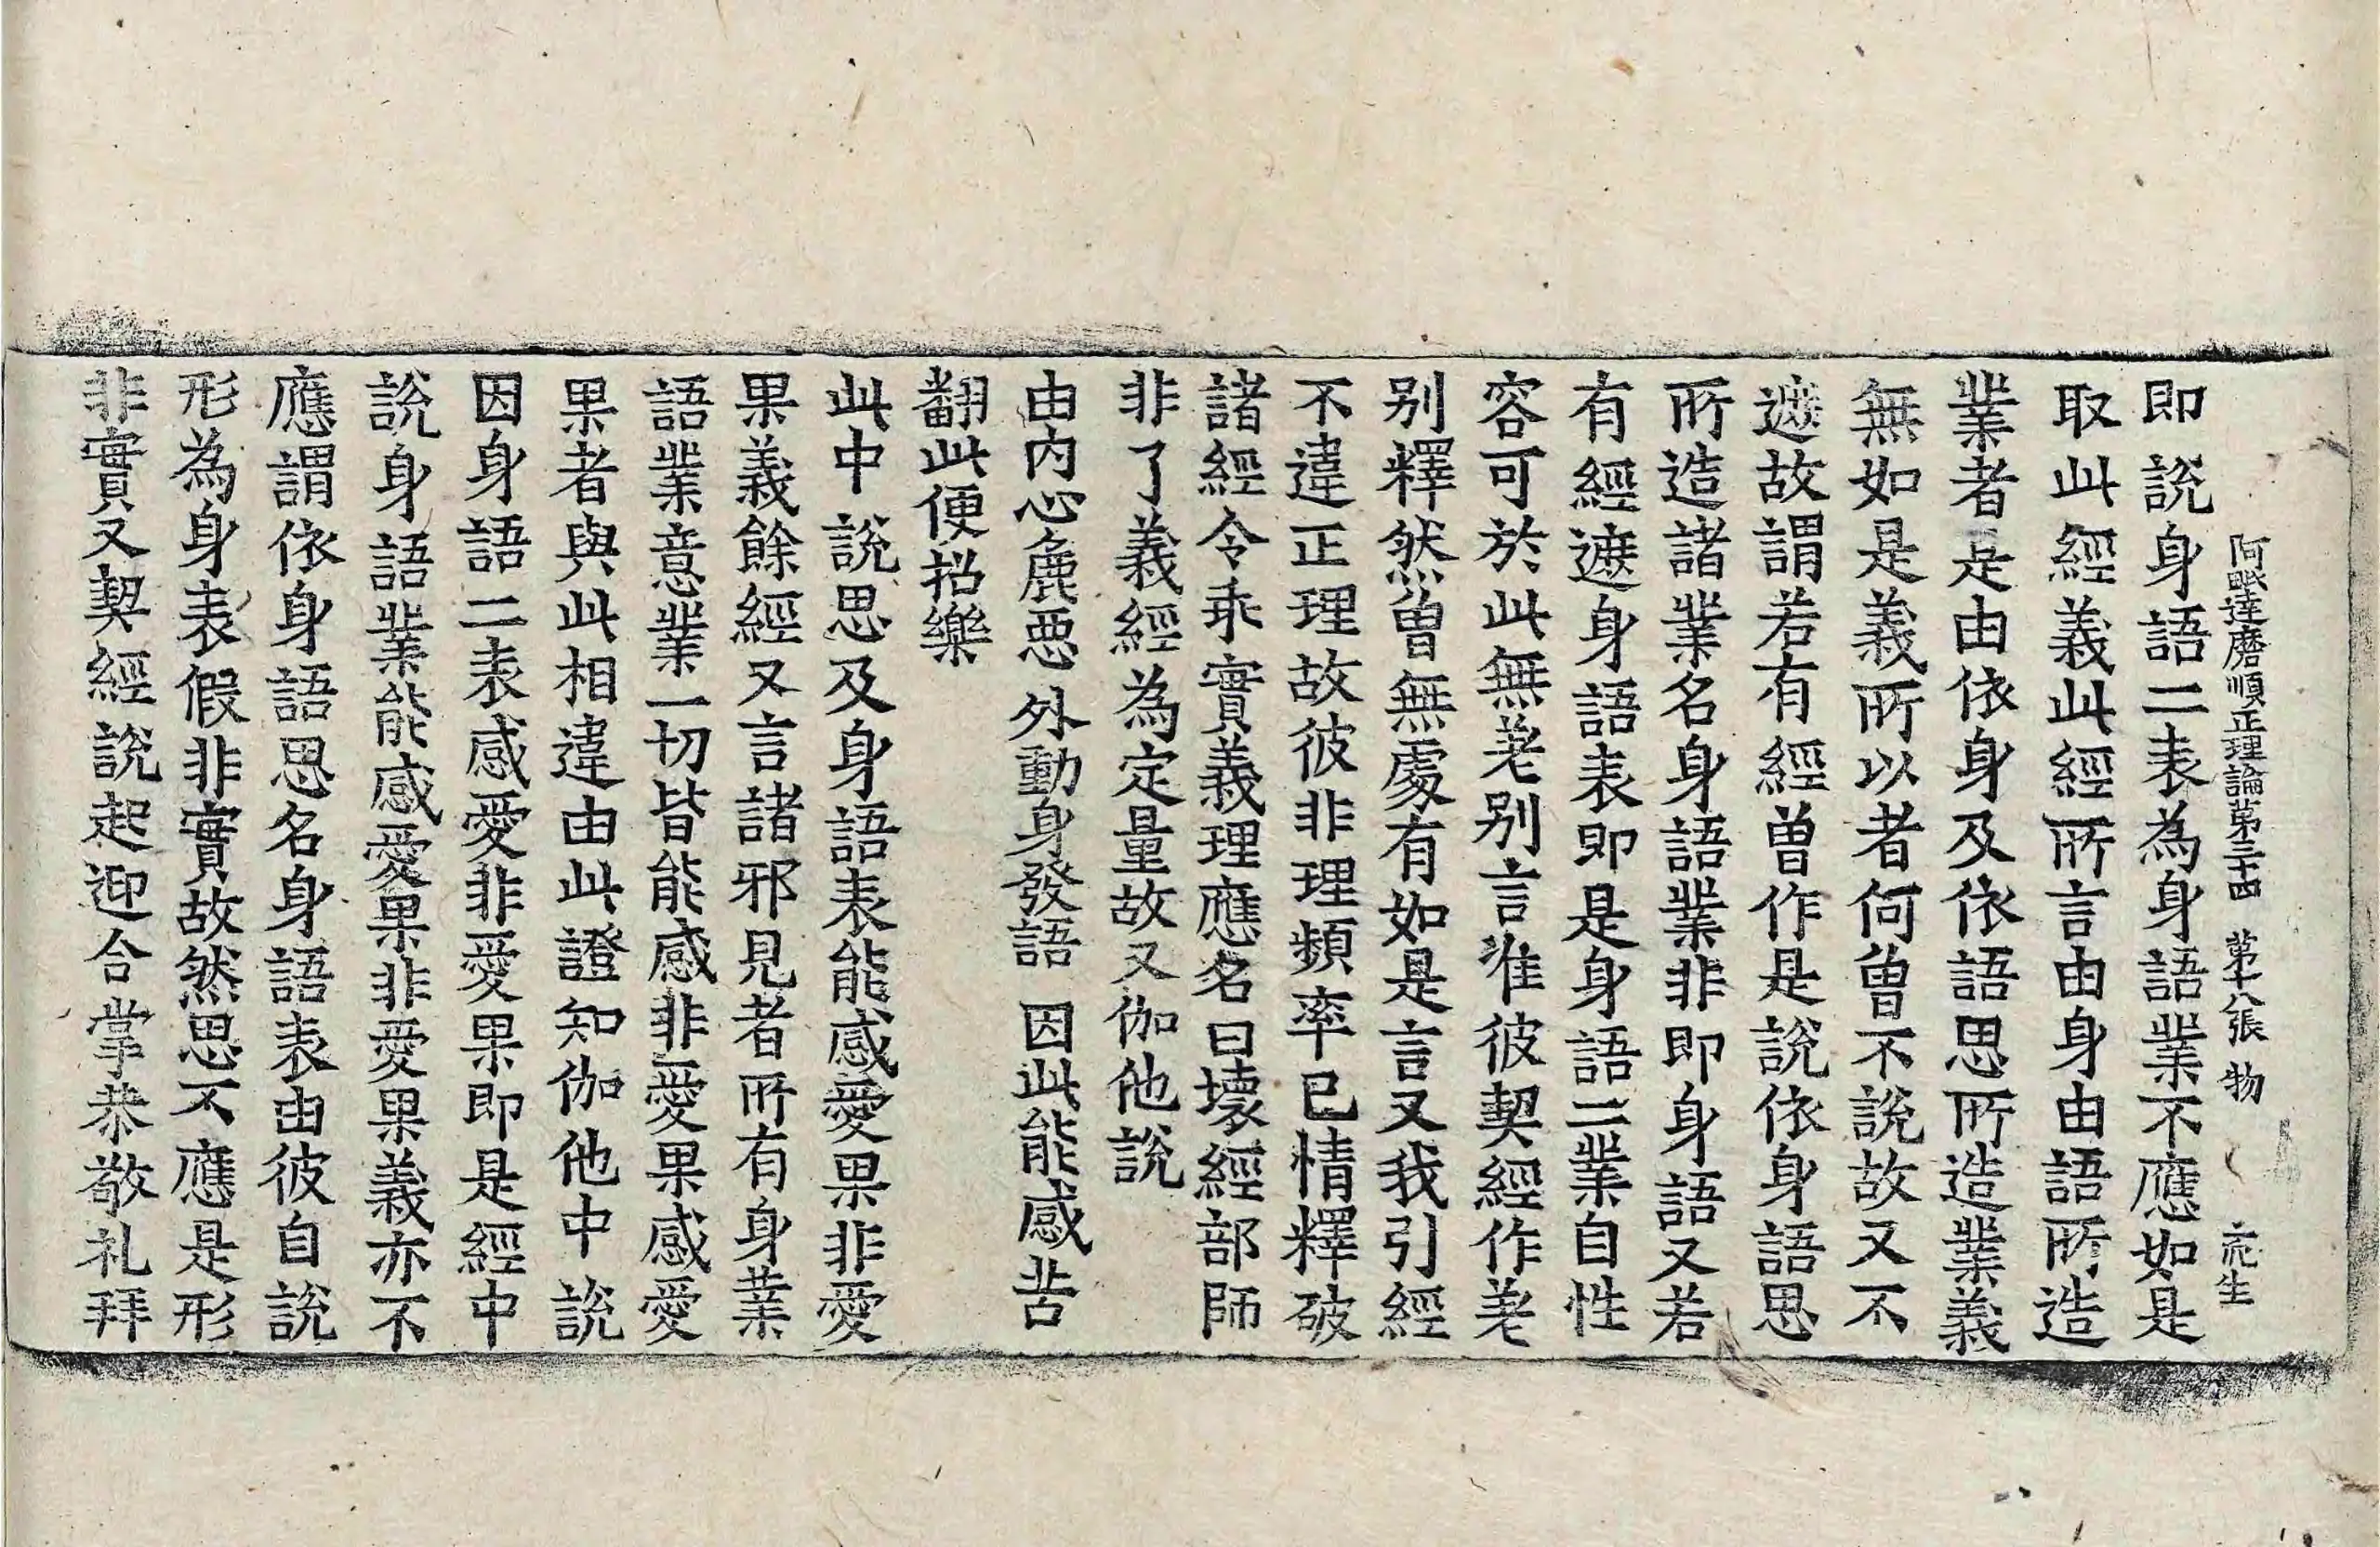 阿毗達磨順正理論第三十四 第十八張 物
即說身語二表為身語業不應如是
取此經義此經所言由身由語所造
業者是由依身及依語思所造業義
無如是義所以者何曾不說故又不
遮故謂若有經曾作是說依身語思
所造諸業名身語業非即身語又若
有經遮身語表即是身語二業自性
容可於此無差別言准彼契經作差
別釋然曾無處有如是言又我引經
不違正理故彼非理頻率已情釋破
諸經令乖實義理應名曰壞經部師
非了義經為定量故又伽他說
由內心麁惡 外動身發語 因此能感苦
翻此便招樂
此中說思及身語表能感愛果非愛
果義餘經又言諸邪見者所有身業
語業意業一切皆能感非愛果感愛
果者與此相違由此證知伽他中說
因身語二表感愛非愛果即是經中
說身語業能感愛果非愛果義亦不
應謂依身語思名身語表由彼自說
形為身表假非實故然思不應是形
非實又契經說起迎合掌恭敬礼拜